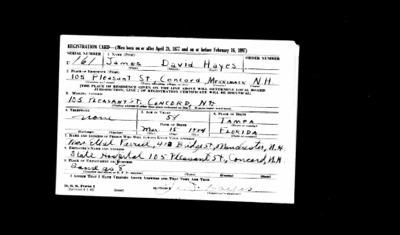 REGISTRATION CARD—(Men born on or after April 28, 1877 and on or before February 16, 1897)
SERIAL NUMBER 1. NAME (Print) ORDER NUMBER
U 161 James David Hayes
2. PLACE OF RESIDENCE (Print)
105 Pleasant St, Concord, Merrimack N.H.
[THE PLACE OF RESIDENCE GIVEN ON THE LINE ABOVE WILL DETERMINE LOCAL BOARD
JURISDICTION; LINE 2 OF REGISTRATION CERTIFICATE WILL BE IDENTICAL]
3. MAILING ADDRESS
105 Pleasant St. Concord, NH
4. TELEPHONE 5. AGE IN YEARS 6. PLACE OF BIRTH
none 58 TAMPA
DATE OF BIRTH
Mar. 15 FLORIDA
7. NAME AND ADDRESS OF PERSON WHO WILL ALWAYS KNOW YOUR ADDRESS
Mrs Ethel 418 Bridge St, Manchester, N.H.
8. EMPLOYER'S NAME AND ADDRESS
State Hospital 105 Pleasant St, Concord, NH
9. PLACE OF EMPLOYMENT OR BUSINESS
Same as 8
I AFFIRM THAT I HAVE VERIFIED ABOVE ANSWERS AND THAT THEY ARE TRUE.
D. S. S. Form 1